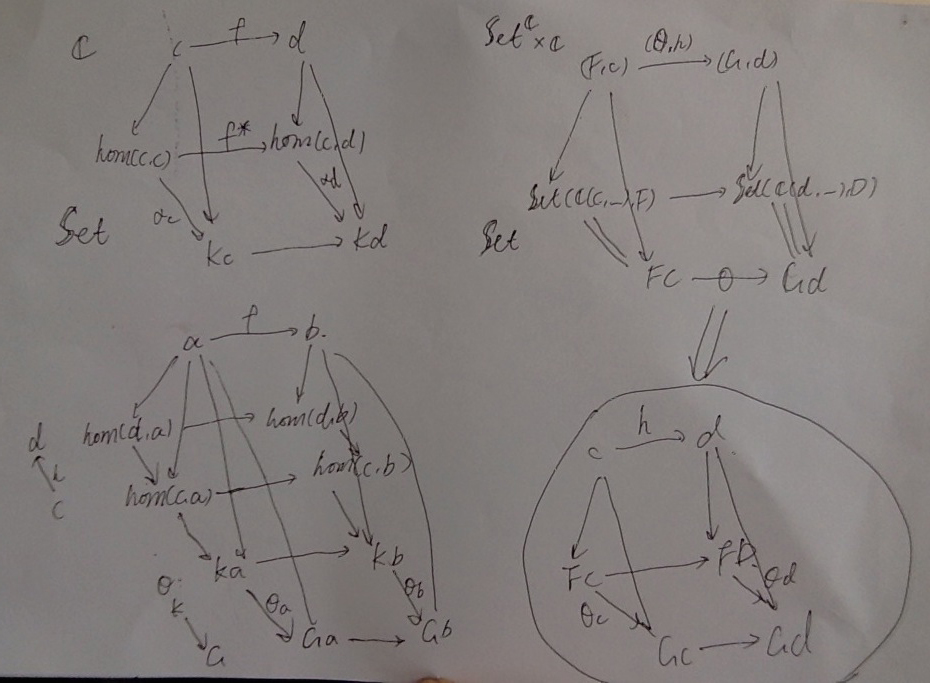 ℂ
c f d
hom(c,c) f* hom(c,d)
αc αd
Set
Kc Kd
Set^ℂ×ℂ
(F,c) (θ,h) (G,d)
Set(ℂ(c,-),F) Set(ℂ(d,-),D)
Set
Fc θ Gd
a f b.
hom(d,a) hom(d,b)
d
h
c
hom(c,a) hom(c,b)
Ka Kb
θ.
K
G
θa θb
Ga Gb
c h d
Fc FD
θc θd
Gc Gd